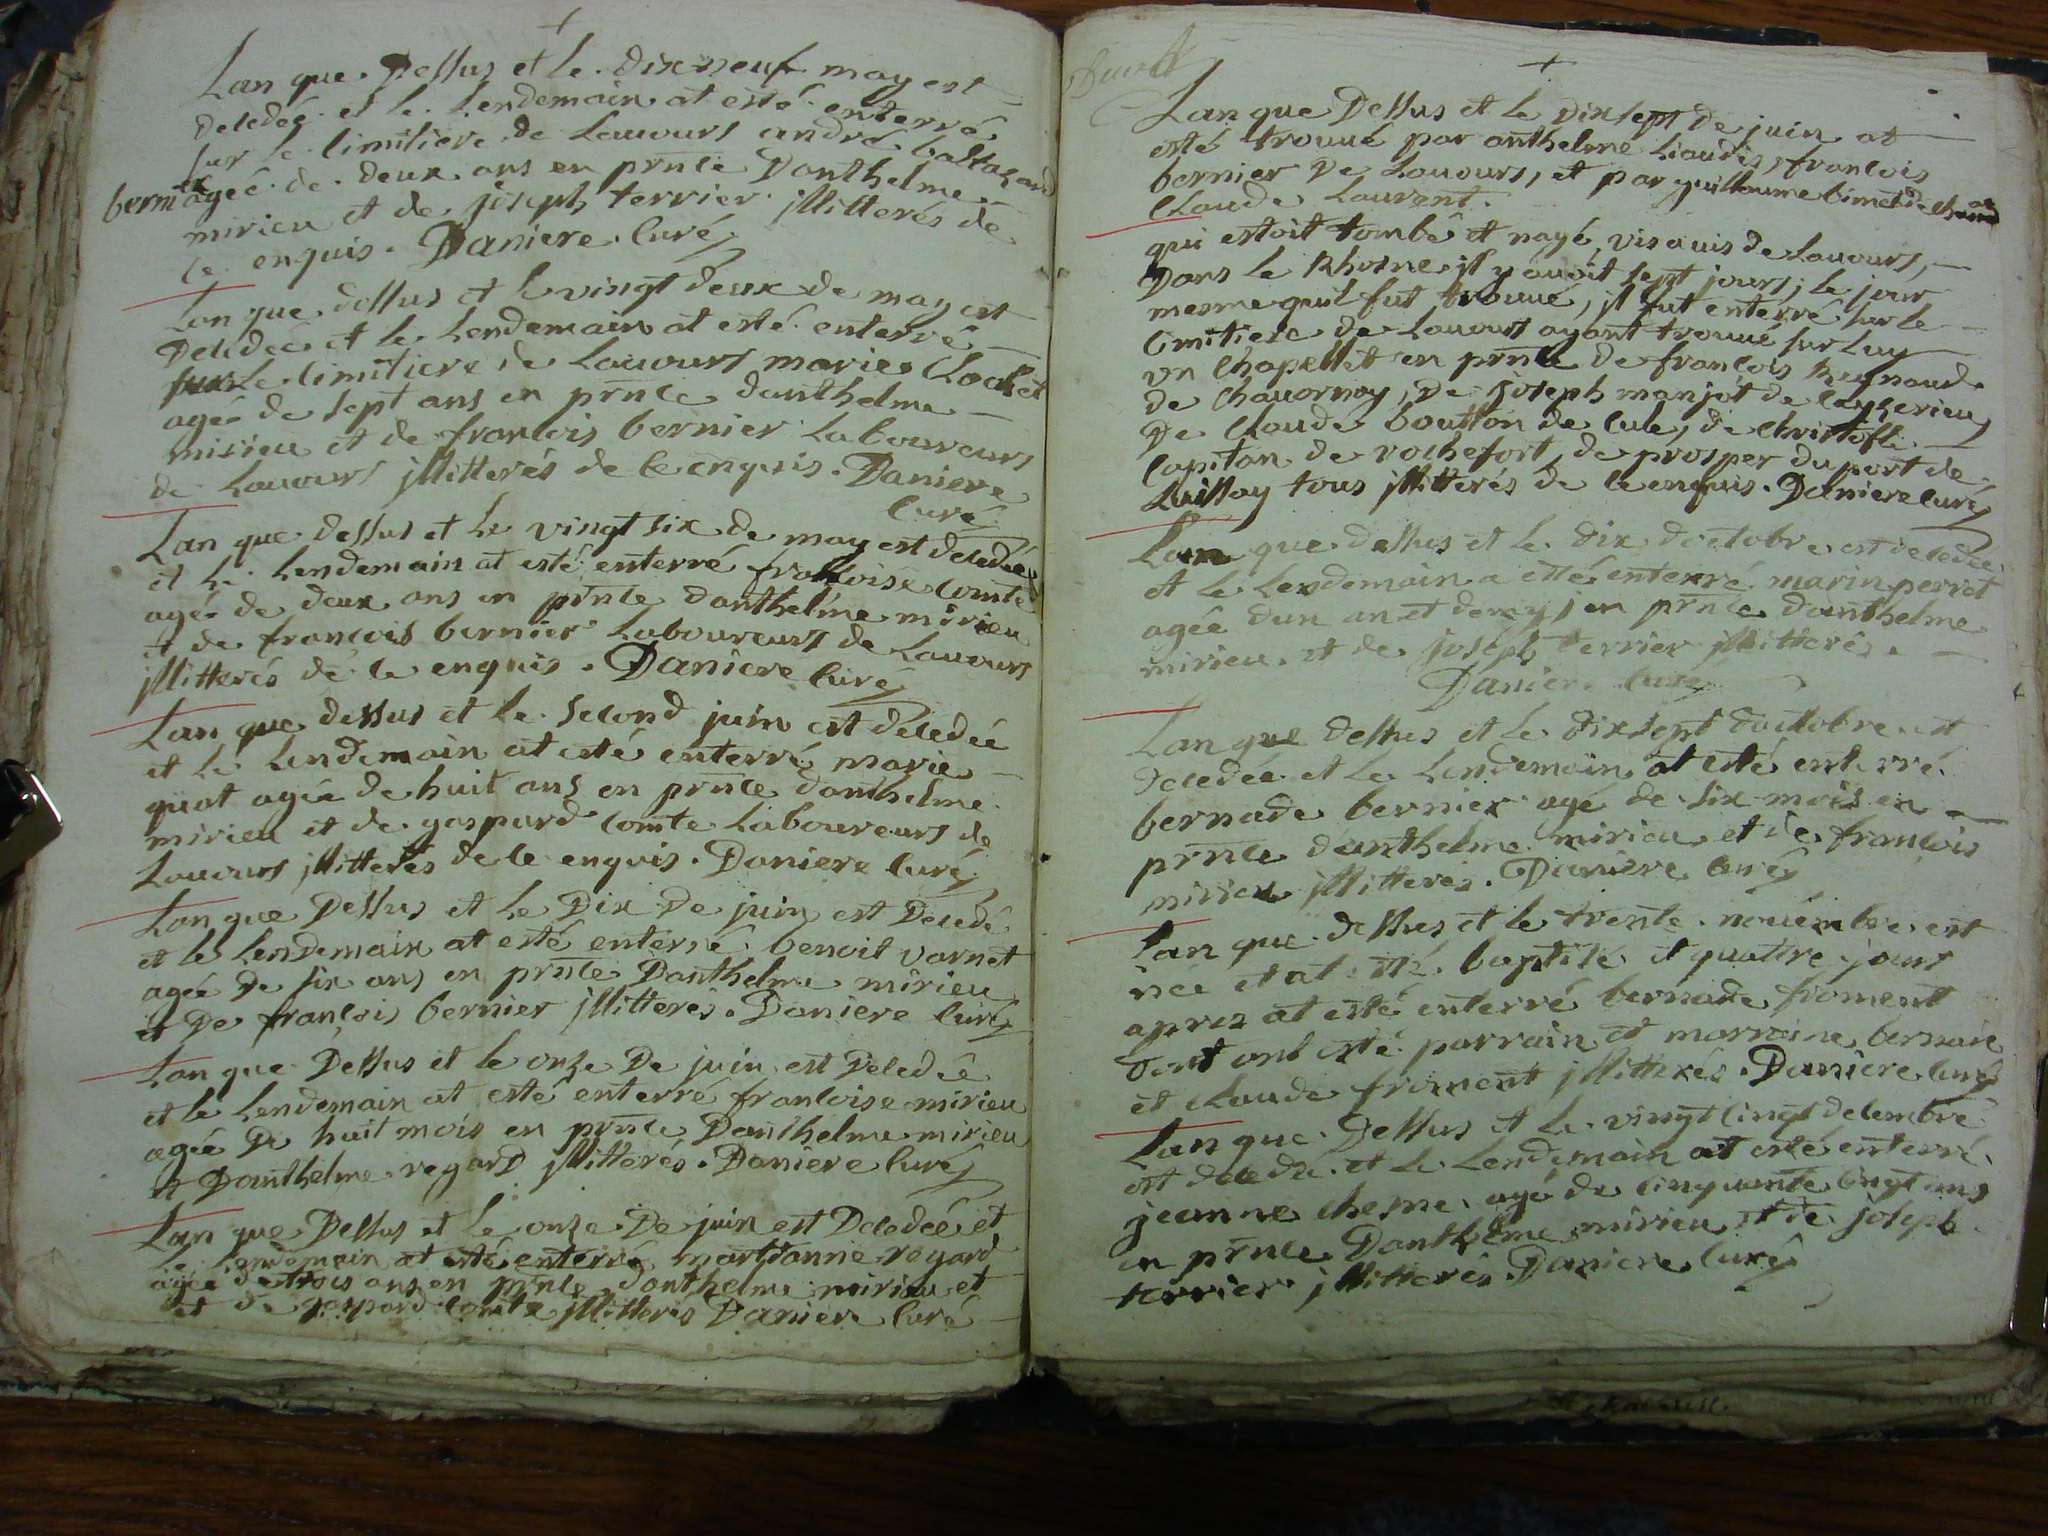 Lan que Dessus et le dixneuf may est
decedée et le Lendemain at esté enterré
sur le cimitiere de Lauours andré baltazard
bernier agée de deux ans en prnce Danthelme
mirieu et de joseph terrier jllitterés de
ce enquis. Daniere Curé
Lan que dessus et le vingt deux de may est
Decedée et le Lendemain at esté enterré
sur le cimitiere de Lauours marie Clochet
agée de sept ans en prnce danthelme
mirieu et de francois bernier Laboureurs
de Lauours jllitterés de ce enquis. Daniere
Curé
Lan que dessus et le vingt six de may est decedée
et le Lendemain at esté enterré francoise comte
agée de deux ans en prnce danthelme mirieu
et de francois bernier Laboureurs de Lauours
jllitterés de ce enquis. Daniere Curé
Lan que dessus et le second juin est decedée
et le Lendemain at esté enterré marie
quat agée de huit ans en prnce danthelme
mirieu et de gaspard comte Laboureurs de
Lauours jllitterés de ce enquis. Daniere Curé
Lan que Dessus et le Dix De juin est Decedé
et le Lendemain at esté enterré benoit varnet
agée De six ans en prnce Danthelme mirieu
et De francois bernier jllitteres. Daniere Curé
Lan que Dessus et le onze De juin est Decedée
et le Lendemain at esté enterré francoise mirieu
agée De huit mois en prnce Danthelme mirieu
et Danthelme regard jllitterés. Daniere Curé
Lan que Dessus et le onze De juin est Decedée et
le Lendemain at esté enterré regard
agée de trois ans en prnce danthelme mirieu et
et de gaspard comte jllitteres Daniere Curé
Lan que Dessus et le Dixsept De juin at
esté trouué par anthelme Liaudis, francois
bernier De Lauours, et par guillaume bimet de
Claude Laurent.
qui estoit tombé et nayé vis auis de Lauours,
Dans le Rhosne jl y auoit sept jours; le jour
mesme quil fut trouué, jl fut enterré sur le
cimitiere de Lauours ayant trouué sur Luy
vn Chapellet en prnce de francois Reynaud
de Chauornay, De joseph manjot de Ceyzerieu
De Claude boutton de Cule, de Christofle
Capitan de rochefort, de prosper duport de
tous jllitterés de ce enquis. Daniere Curé
Lan que dessus et le dix doctobre est decedée
et le Lendemain a esté enterré marin perret
agée dun an et demy, en prnce danthelme
mirieu et de joseph terrier jllitterés.
Daniere Curé
Lan que dessus et le dixsept doctobre est
decedée et le Lendemain at esté enterré
bernade bernier agé de six mois en
prnce danthelme mirieu et de francois
mirieu jllitterés. Daniere Curé
Lan que dessus et le trente nouembre est
née et at esté baptisé et quattre jours
apres at esté enterré bernade froment
dont ont esté parrain et marraine bernade
et Claude froment jllitterés. Daniere Curé
Lan que Dessus et le vingt cinqt decembre
est decedée et le Lendemain at esté enterré
jeanne chesne agé de cinquante cinqt ans
en prnce Danthelme mirieu et de joseph
terrier jllitterés. Daniere Curé